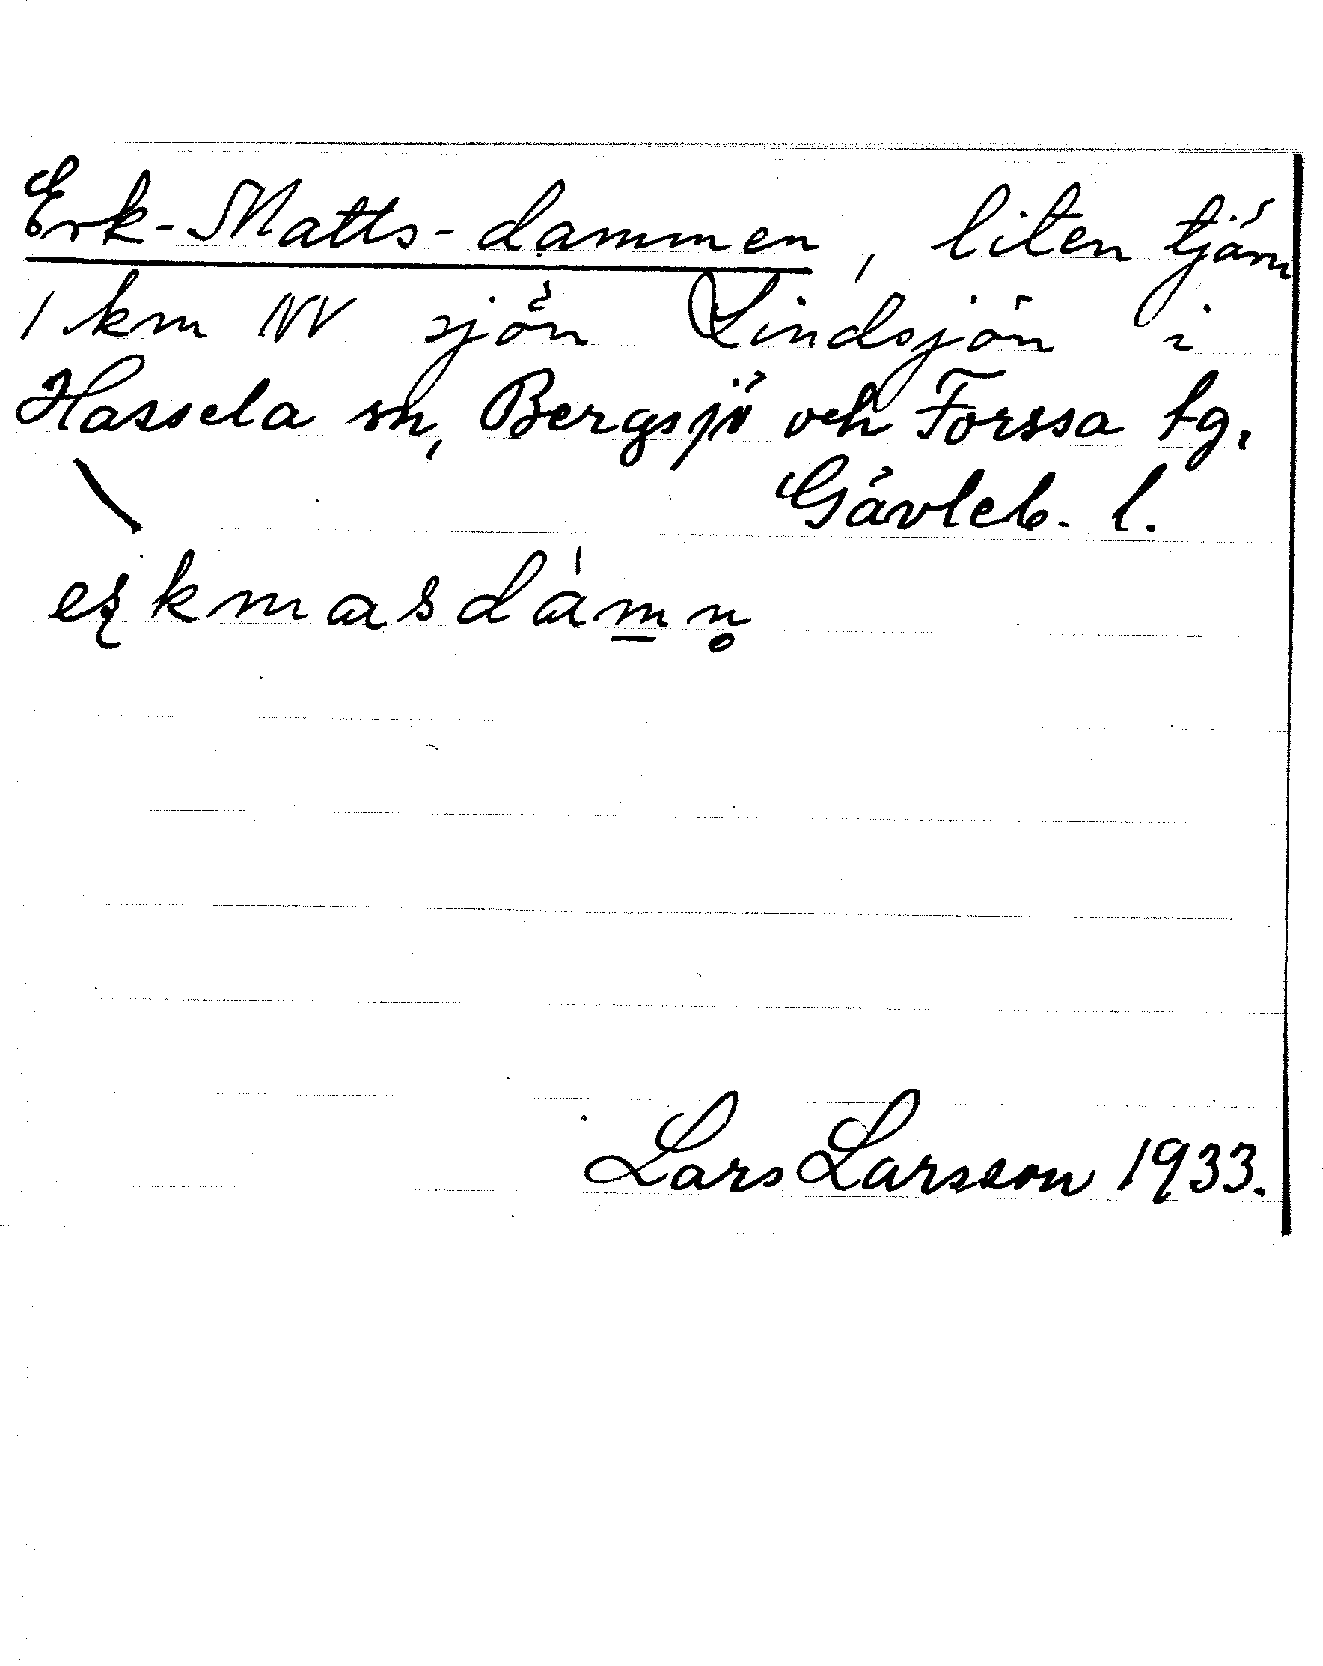 Erk-Matts-dammen, liten tjärn
1 km NV sjön Lindsjön i
Hassela sn, Bergsjö och Forssa tg.
Gävleb. l.
Lars Larsson 1933.